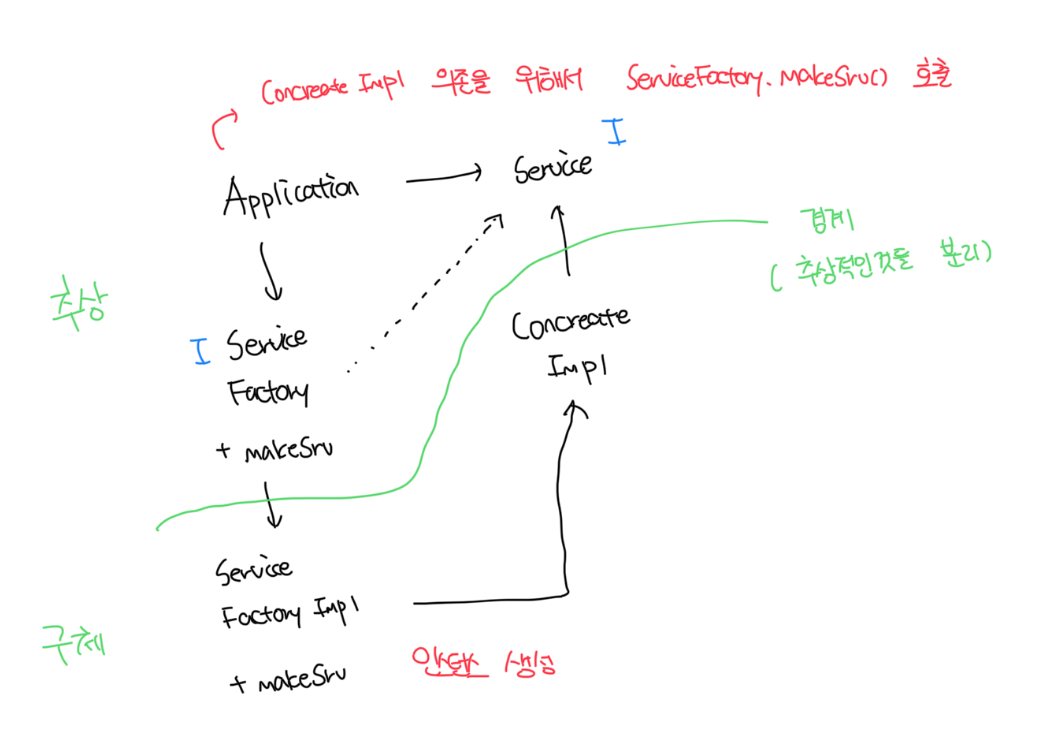 Concreate Impl 의존을 위해서 ServiceFactory.makeSrv() 호출
I
Application
Service
경계
( 추상적인것들 분리)
추상
I Service
Factory
+ makeSrv
Concreate
Impl
Service
Factory Impl
+ makeSrv
구체
인스턴스 생성